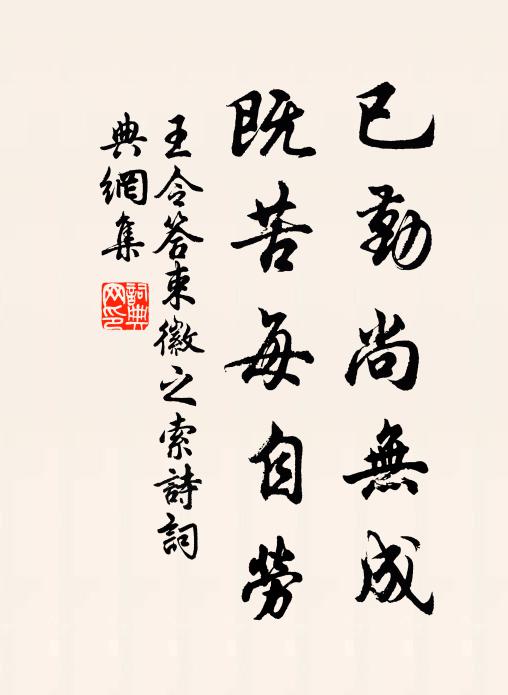 已勤尚無成
既苦每自勞
王令答束徽之索詩詞
典網集
詞典
网印